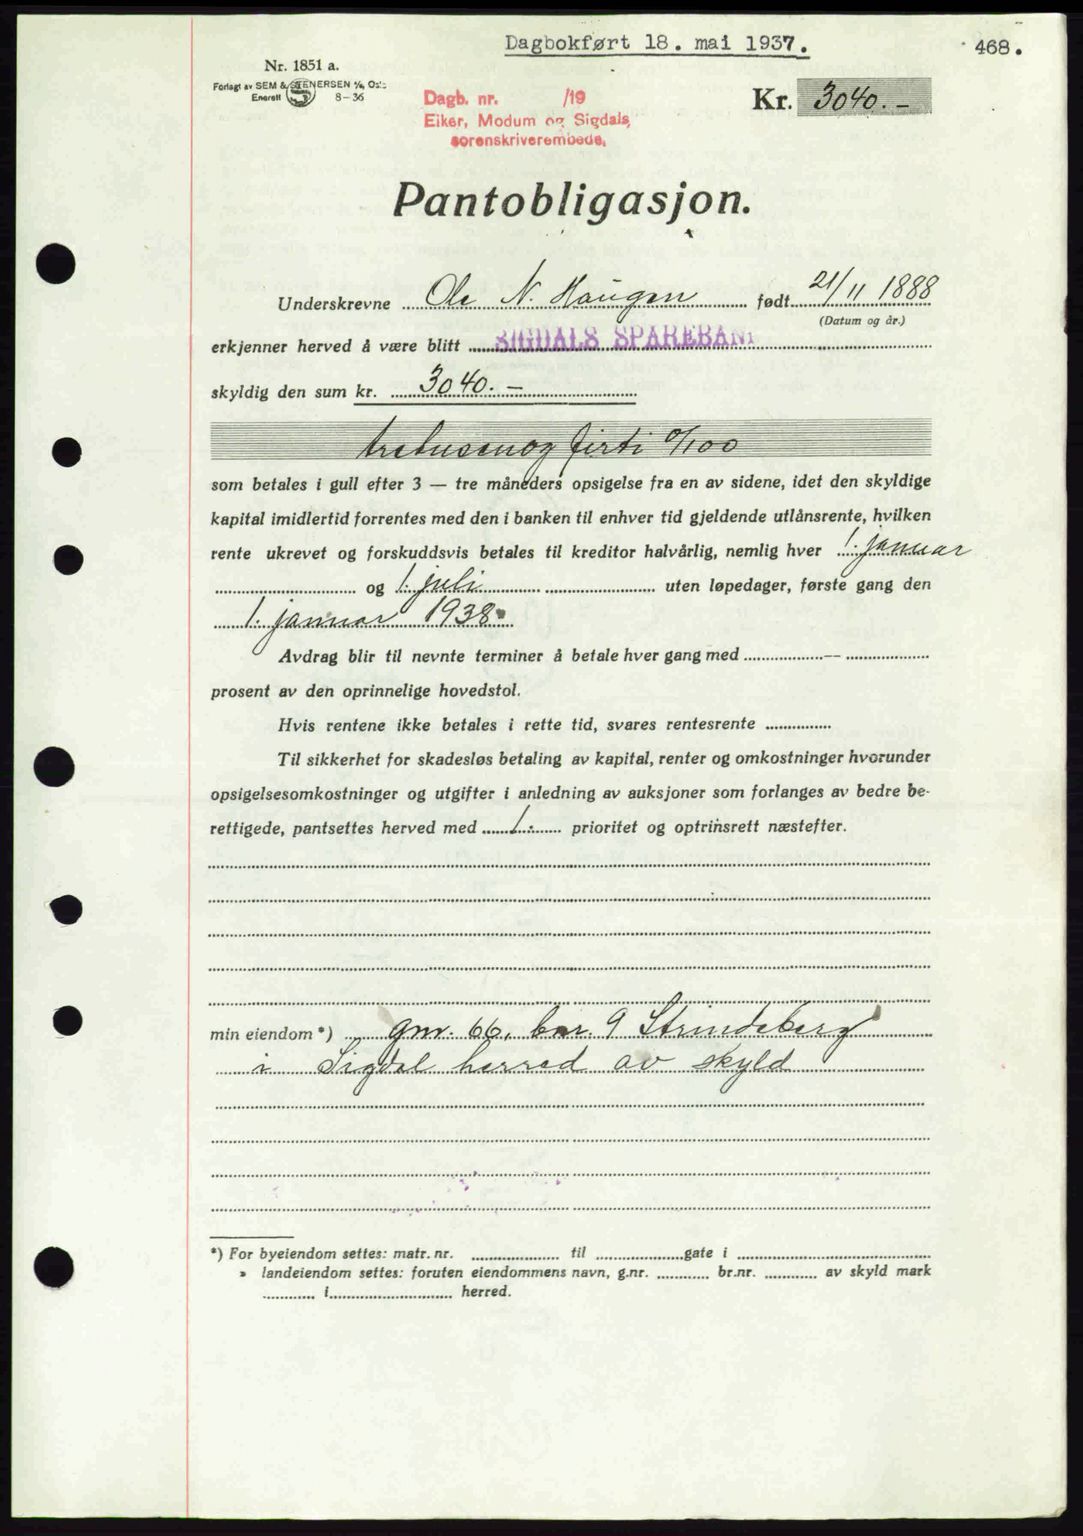 Dagbokført 18. mai 1937.
468.
Nr. 1851 a.
Forlagt av SEM & STENERSEN A/S, Oslo
Enerett 8-36
Dagb. nr. /19
Eiker, Modum og Sigdals
sorenskriverembede.
Kr. 3040.-
Pantobligasjon.
Underskrevne Ole N. Haugen født 21/11 1888
(Datum og år.)
erkjenner herved å være blitt SIGDALS SPAREBANK
skyldig den sum kr. 3040.-
tretusenogfirti 0/100
som betales i gull efter 3 — tre måneders opsigelse fra en av sidene, idet den skyldige
kapital imidlertid forrentes med den i banken til enhver tid gjeldende utlånsrente, hvilken
rente ukrevet og forskuddsvis betales til kreditor halvårlig, nemlig hver 1. januar
og 1. juli uten løpedager, første gang den
1. januar 1938.
Avdrag blir til nevnte terminer å betale hver gang med --
prosent av den oprinnelige hovedstol.
Hvis rentene ikke betales i rette tid, svares rentesrente
Til sikkerhet for skadesløs betaling av kapital, renter og omkostninger hvorunder
opsigelsesomkostninger og utgifter i anledning av auksjoner som forlanges av bedre be-
rettigede, pantsettes herved med 1. prioritet og optrinsrett næstefter.
min eiendom *) gnr. 66, bnr. 9 Strindeberg
i Sigdal herred av skyld
*) For byeiendom settes: matr. nr. til gate i
» landeiendom settes: foruten eiendommens navn, g.nr. br.nr. av skyld mark
i herred.